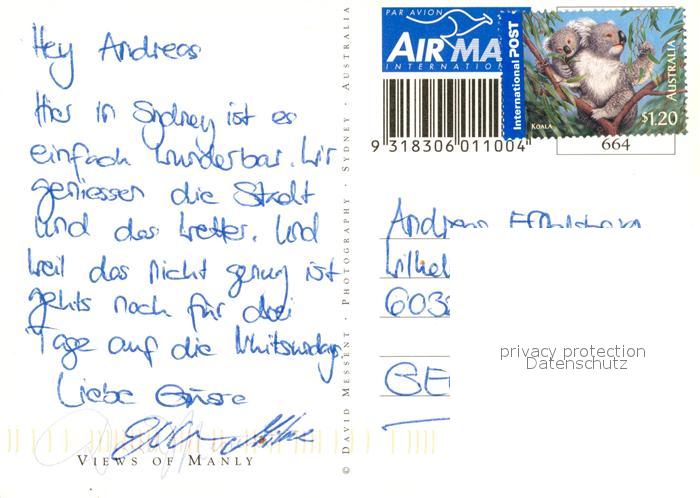 Hey Andreas
Hier in Sydney ist es
einfach wunderbar. Wir
geniessen die Stadt
und das Wetter. Und
weil das nicht genug ist
gehts noch für drei
Tage auf die Whitsunday
Liebe Grüsse
VIEWS OF MANLY
© DAVID MESSENT · PHOTOGRAPHY · SYDNEY · AUSTRALIA
PAR AVION
AIR MA
INTERNATION
International POST
KOALA
AUSTRALIA
$1.20
9 318306 011004
664
Andreas
603
GE
privacy protection
Datenschutz